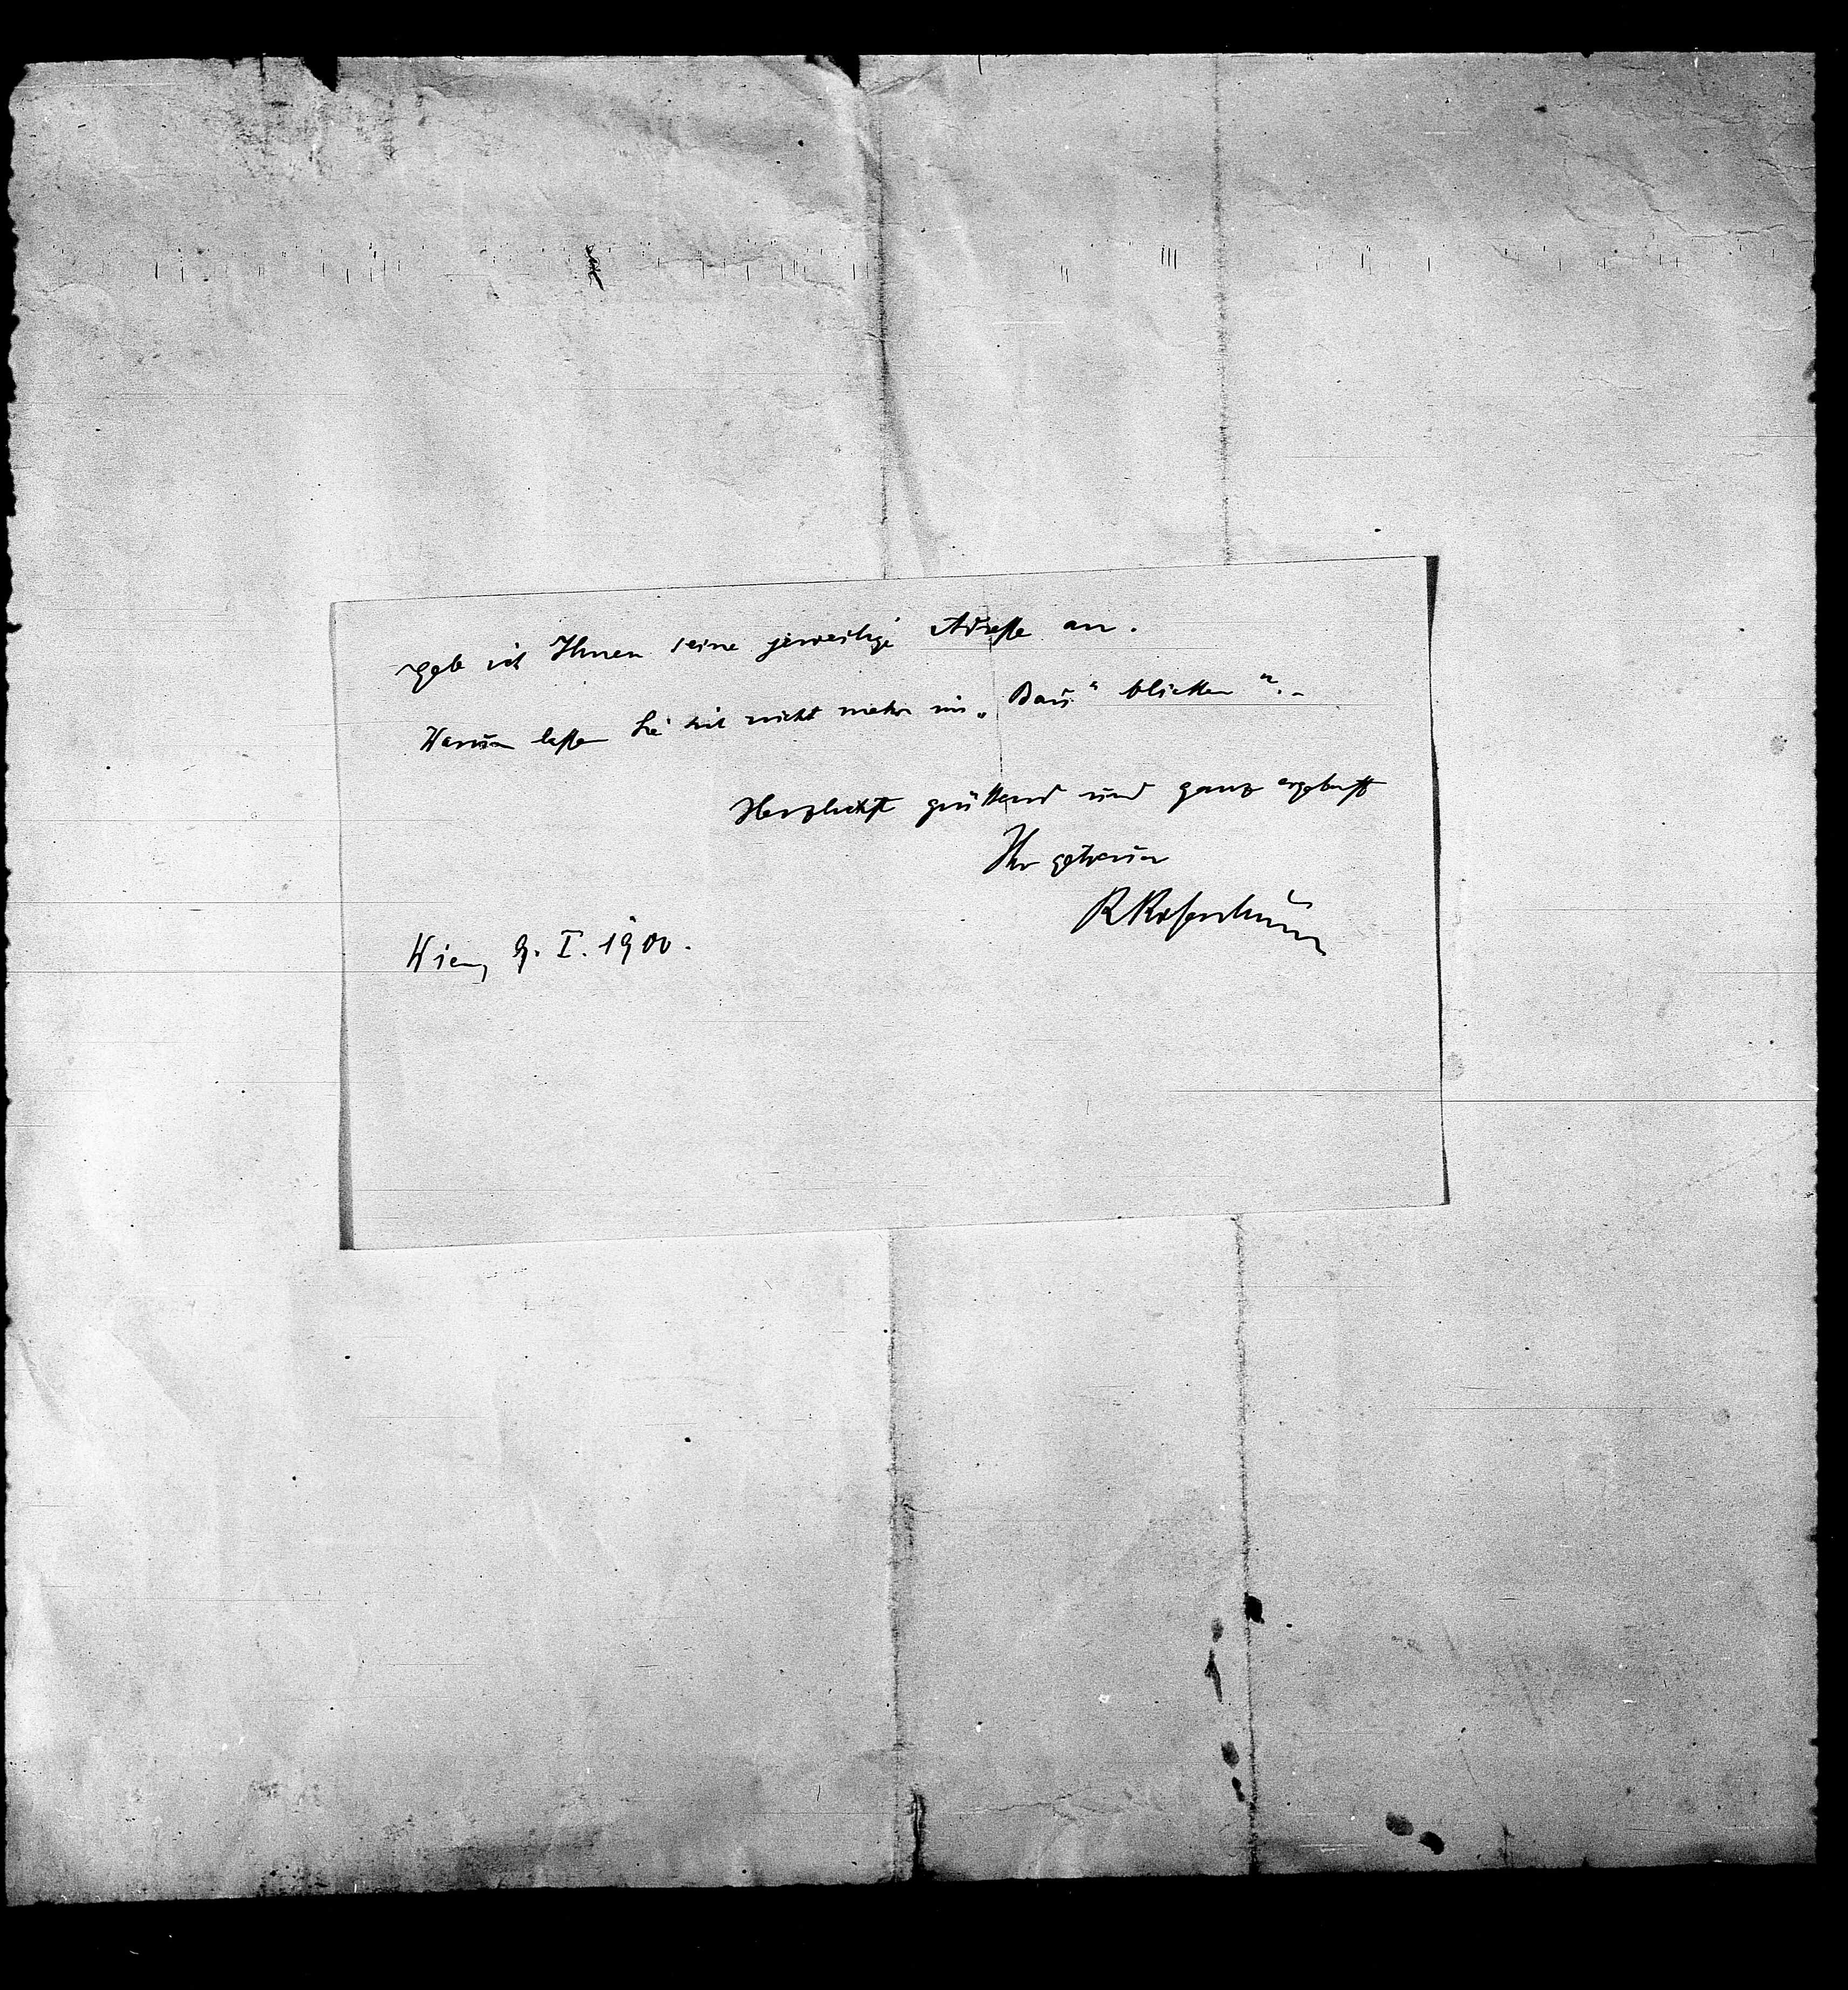 gebe ich Ihnen seine jeweilige Adresse an.
Warum lassen Sie sich nicht mehr im „Bau“ blicken“.-
Herzlichst grüßend und ganz ergebenst
Ihr getreuer
R Rosenbaum
Wien, 9. I. 1900.